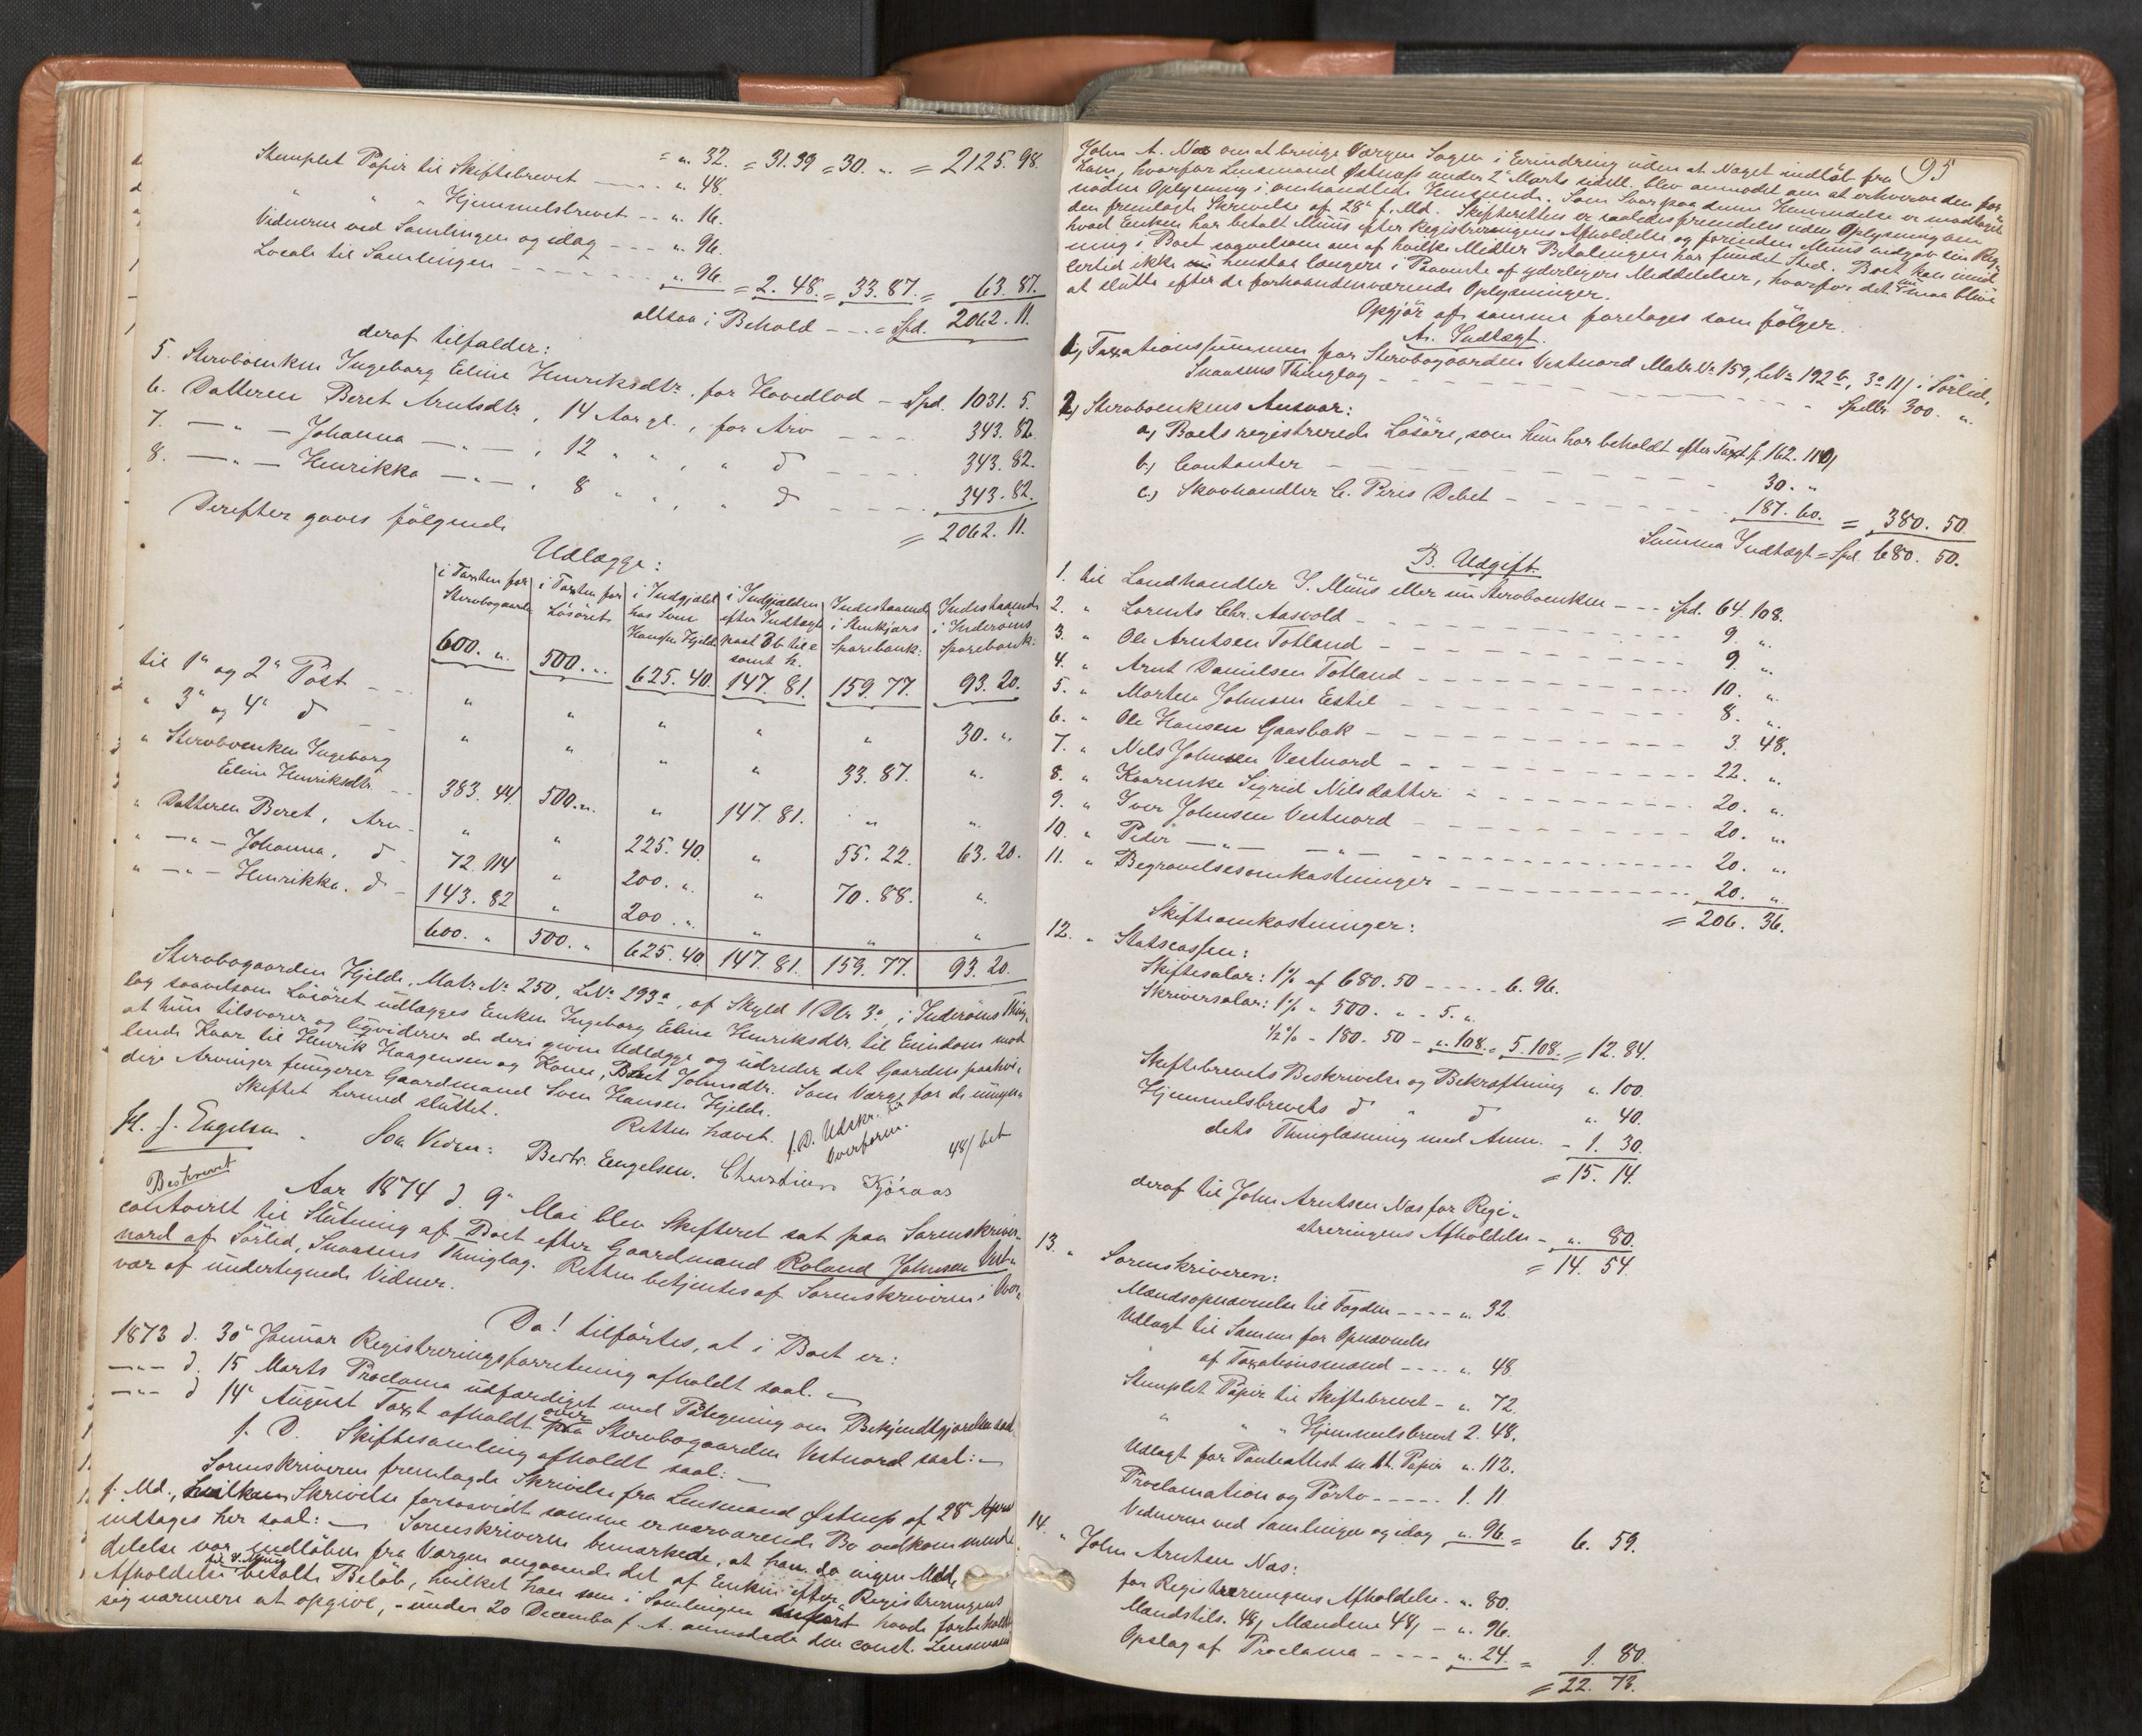 = „. 32. = 31. 39 = 30. „. = 2125. 98.
Stemplet Papir til Skiftebrevet - - - „. 48.
„ „ „ Hjemmelsbrevet - - „. 16.
Vidnerne ved Samlingen og idag - - - „. 96.
Locale til Samlingen - - - - - - - „. 96. = 2. 48. = 33. 87. = 63. 87.
altsaa i Behold - - - = Spd. 2062. 11.
deraf tilfalder:
5. Stervboenken Ingeborg Eline Henriksdtr. for Hovedlod - Spd. 1031. 5.
6. Datteren Beret Arntsdtr, 14 Aar gl., for Arv - - - 343. 82.
7. — „ — Johanna — „ —, 12 „ „, „ d - - - - 343. 82.
8. — „ — Henrikka — „ —, 8 „ „, „ d - - - - 343. 82.
= 2062. 11.
Derefter gaves følgende
Udlægge:
i Taxten for Stervbogaarden | i Taxten for Løsøret | i Indgjæld hos Sven Hansen Hjelde | i Indgjælden efter Indtægts post 3 b til e samt h. | Indestaaende i Stenkjærs Sparebank: | Indestaaende i Inderøens Sparebank:
600. „. | 500. „. | 625. 40. | 147. 81. | 159. 77. | 93. 20.
til 1ª og 2ª Post - - „ „ „ „ „ 30. „.
„ 3ª og 4ª d — „ „ „ „ 33. 87. „.
„ Stervboenken Ingeborg
Eline Henriksdtr. - - 383. 44. 500. „. „ 147. 81. „ „.
„ Datteren Beret, Arv - „ „ 225. 40. „ 55. 22. 63. 20.
„ — „ — Johanna, d - 72. 114 „ 200. „. „ 70. 88. „.
„ — „ — Henrikka. d - 143. 82 „ 200. „. „ „ „
600. „ 500. „ 625. 40. 147. 81. 159. 77. 93. 20.
Stervbogaarden Hjelde, Matr. No. 250, LNo. 293ª, af Skyld 1 Dlr. 3 o, i Inderøens Thing-
lag saavelsom Løsøret udlægges Enken Ingeborg Eline Henriksdtr. til Eiendom mod
at hun tilsvarer og liqviderer de deri givne Udlægge og udreder det Gaarden paahvi-
lende Kaar til Henrik Haagensen og Kone, Beret Johnsdtr. Som Værge for de umyn-
dige Arvinger fungerer Gaardmand Sven Hansen Hjelde.
Skiftet hermed sluttet.
Retten hævet.
f. D. Udskr. til Overform. 48/ bet
H. J. Engelsen. Som Vidner: Bertr. Engelsen. Christian Kjøraas
Beskrevet
Aar 1874 d. 9ª Mai blev Skifteret sat paa Sorenskriver-
contoiret til Slutning af Boet efter Gaardmand Roland Johnsen Vest-
nord af Sørlid, Snaasens Thinglag. Retten betjentes af Sorenskriveren i Over-
vær af undertegnede Vidner.
Da! tilførtes, at i Boet er:
1873 d. 30ª Januar Registreringsforretning afholdt saal. —
— „ — d. 15 Marts Proclama udfærdiget med Påtegning om Bekjendtgjørelse saal.
— „ — d 14ª August Taxt afholdt over Stervbogaarden Vestnord saal: —
f. D. Skiftesamling afholdt saal: —
Sorenskriveren fremlagde Skrivelse fra Lensmand Østrup af 28ª April
f. Md., hvilken Skrivelse forsaavidt samme er nærværende Bo vedkommende
indtages her saal: — Sorenskriveren bemærkede, at han da ingen Med-
delelse var indløben fra Værgen angaaende det af Enken efter Registreringens
Afholdelse til I. Müus betalte Beløb, hvilket han som i Samlingen anført havde forbeholdt
sig nærmere at opgive, - under 20 December f. A. anmodede den const. Lensmand
95
John A. Næs om at bringe Værgen Sagen i Erindring uden at Noget indløb fra
ham, hvorfor Lensmand Østrup under 2ª Marts sidstl. blev anmodet om at erhverve den for-
nødne Oplysning i omhandlede Henseende. Som Svar paa denne Henvendelse er modtaget
den fremlagte Skrivelse af 28ª f. Md. Skifteretten er saaledes fremdeles uden Oplysning om
hvad Enken har betalt Müus efter Registreringens Afholdelse og forinden Müus indgav sin Reg-
ning i Boet saavelsom om af hvilke Midler Betalingen har fundet Sted. Boet kan imid-
lertid ikke henstaa længere i Paavente af yderligere Meddelelser, hvorfor det nu maa blive
at slutte efter de forhaandenværende Oplysninger.
Opgjør af samme foretages som følger.
A. Indtægt.
1, Taxationssummen for Stervbogaarden Vestnord Matr. No. 159, LNo. 192 b, 3 o 11/ i Sørlid,
Snaasens Thinglag - - - - - - - - - - Spdlr. 300. „.
2, Stervboenkens Ansvar:
a, Boets registrerede Løsøre, som hun har beholdt efter Taxt S. 162. 110,
b, Contanter - - - - - - - - - - 30. „
c, Skovhandler C. Peris Debet - - - - - - 187. 60. = 380. 50.
Summa Indtægt = Spd. 680. 50.
B. Udgift.
1. til Landhandler I. Müus eller nu Stervboenken - - - Spd. 64. 108.
2. „ Lorents Chr. Aasvold - - - - - - - - 9. „.
3. „ Ole Arntsen Totland - - - - - - - - 9. „.
4. „ Arnt Danielsen Totland - - - - - - - 10. „.
5. „ Morten Johnsen Estil - - - - - - - 8. „.
6. „ Ole Hansen Gaasbak - - - - - - - 3. 48.
7. „ Nils Johnsen Vestnord - - - - - - - 22. „.
8. „ Kaarenke Sigrid Nilsdatter - - - - - - 20. „.
9. „ Iver Johnsen Vestnord - - - - - - - 20. „.
10. „ Peder — „ — — „ — - - - - - - 20. „.
11. „ Begravelsesomkostninger - - - - - - - 20. „.
= 206. 36.
Skifteomkostninger:
12. „ Statscassen:
Skiftesalær: 1% af 680. 50 - - - - - 6. 96.
Skriversalær: 1% „ 500. „. - 5. „.
½% - 180. 50 - „. 108. = 5. 108. = 12. 84.
Skiftebrevets Beskrivelse og Bekræftning „. 100.
Hjemmelsbrevets d „ d „. 40.
dets Thinglæsning med Anm. - 1. 30.
= 15. 14.
deraf til John Arntsen Næs for Regi-
streringens Afholdelse - „. 80.
= 14. 54.
13. „ Sorenskriveren:
Mandsopnævnelse til Fogden - - - - „. 32.
Udlagt til Samme for Opnævnelse
af Taxationsmænd - - - - „. 48.
Stemplet Papir til Skiftebrevet - „. 72.
„ „ „ Hjemmelsbrevet 2. 48.
Udlagt for Panteattest m st. Papir „. 112.
Proclamation og Porto - - - - - 1. 11.
Vidnerne ved Samlingen og idag „. 96. = 6. 59.
14. „ John Arntsen Næs:
for Registreringens Afholdelse - „. 80.
Mandstils. 48/ Mændene 48/ - „. 96.
Opslag af Proclama - - - - „. 24. = 1. 80.
= 22. 73.